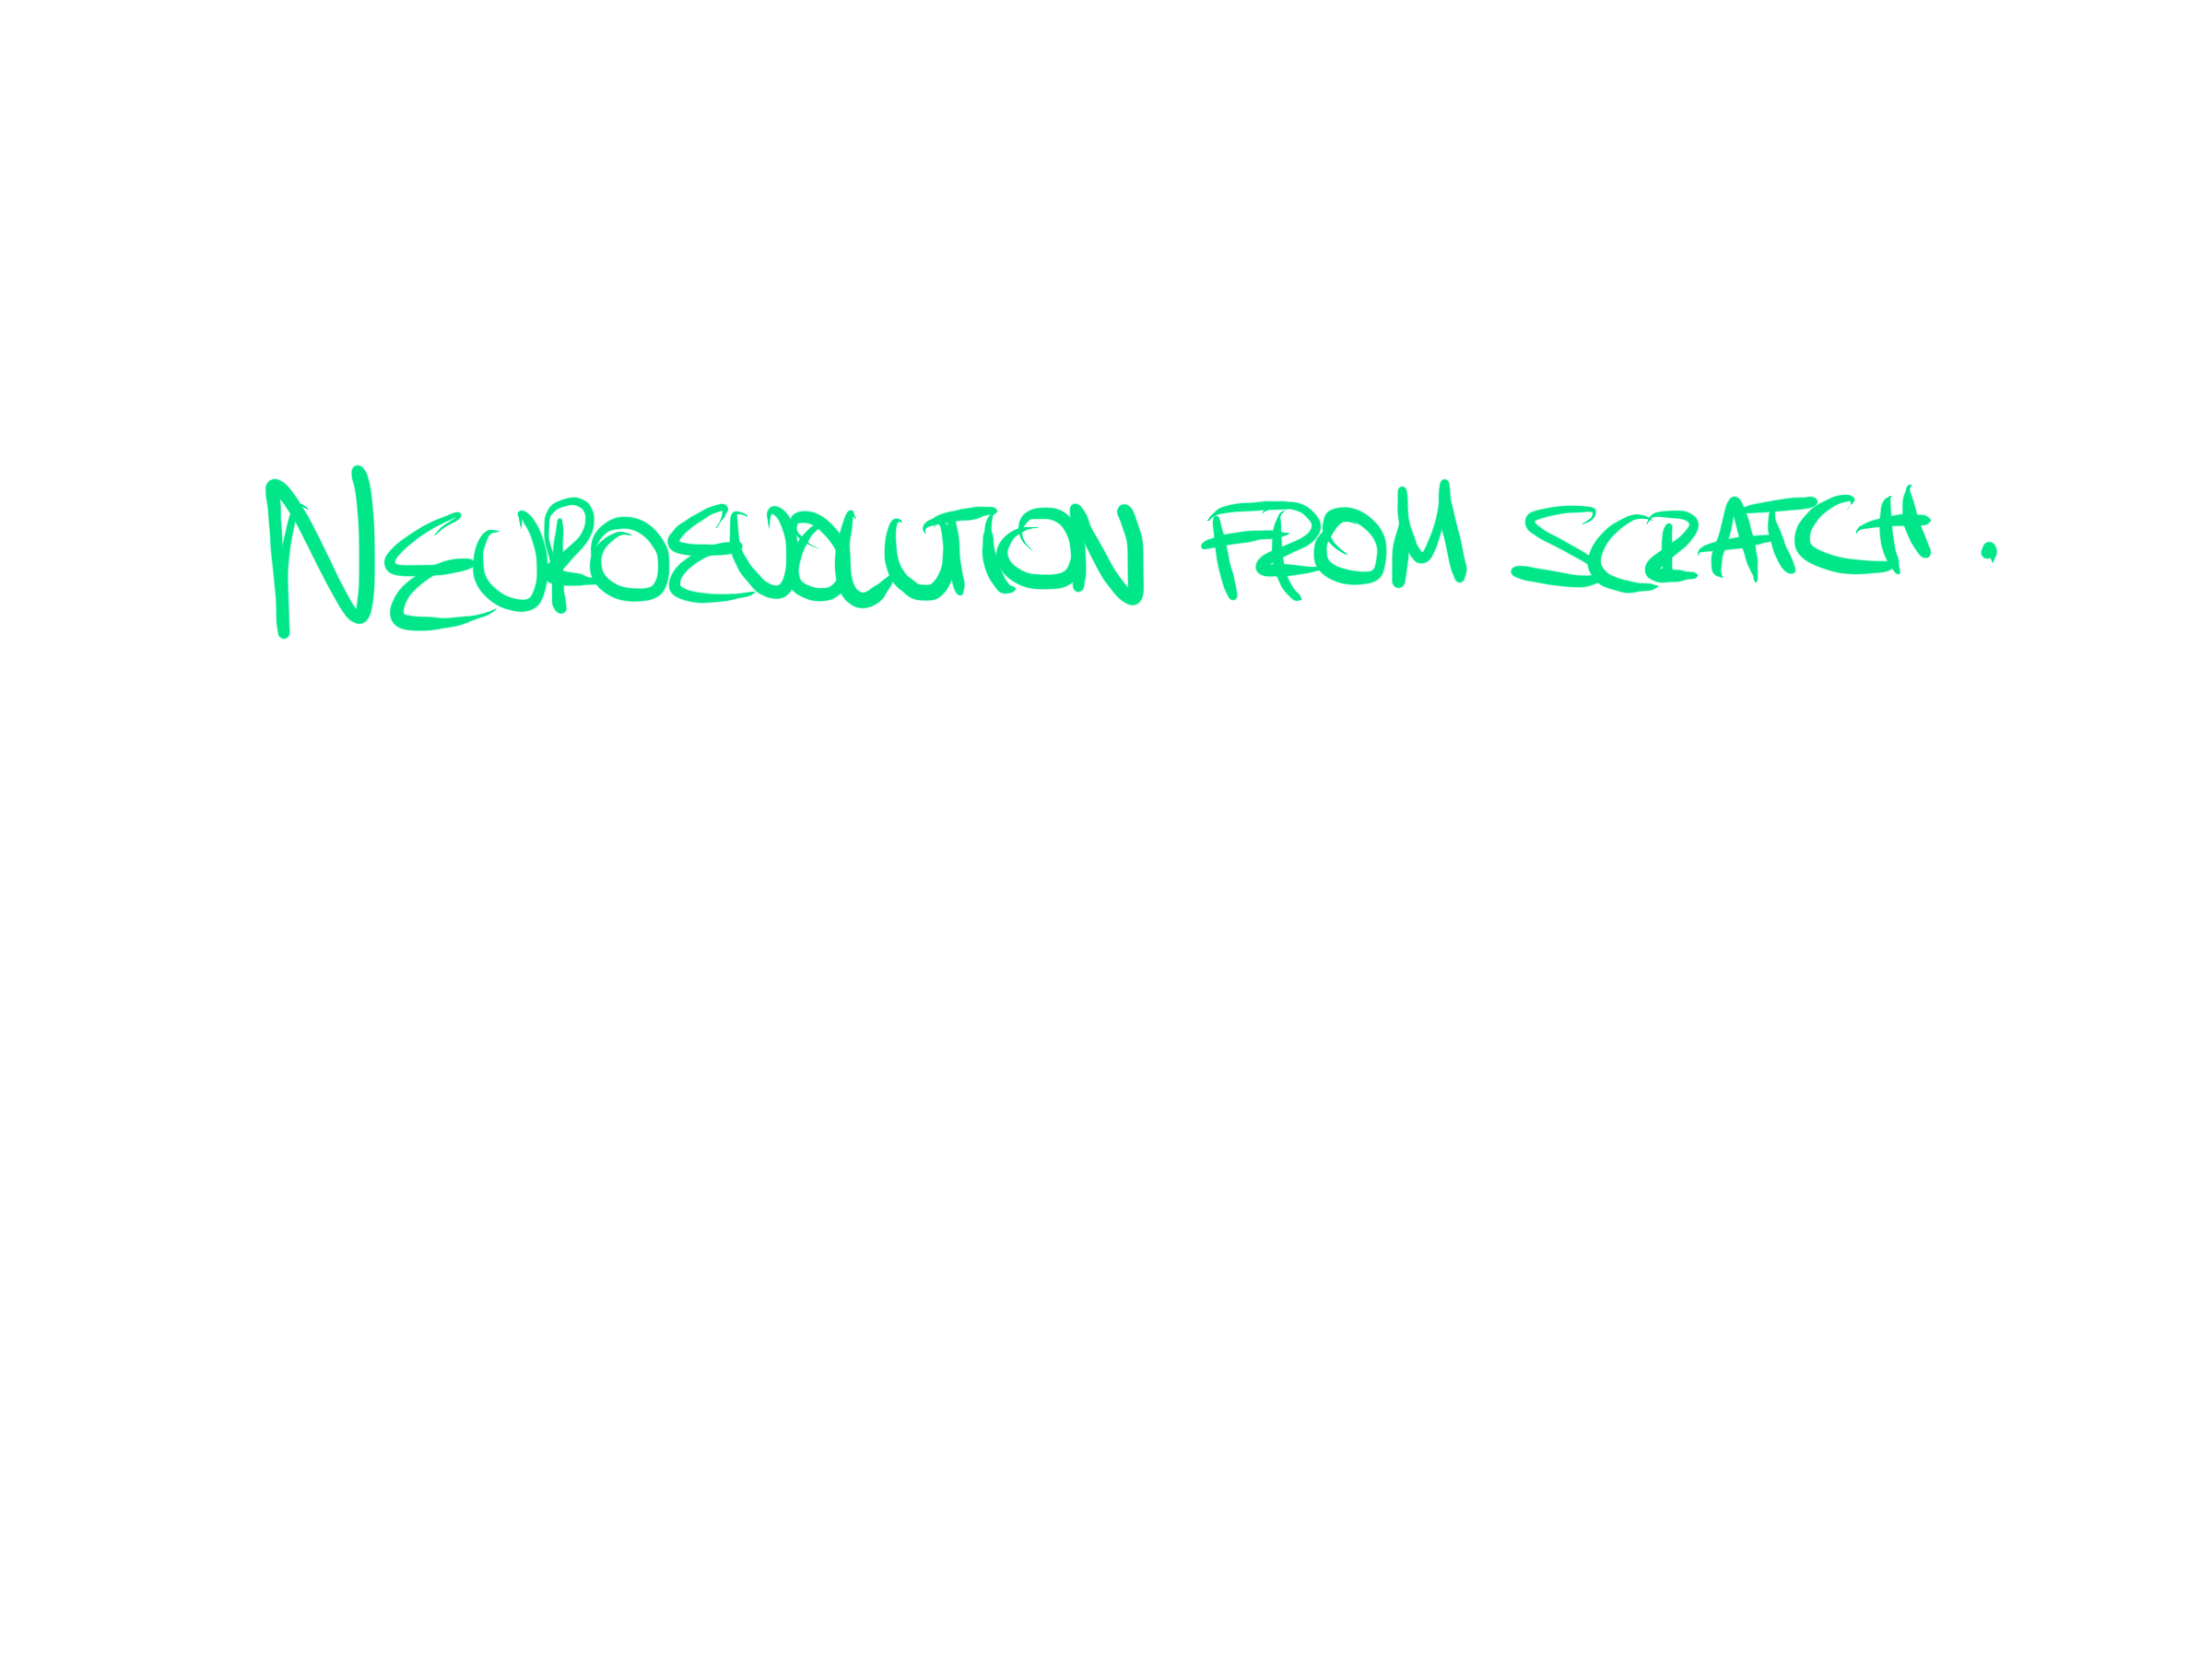 NEUROEVOLUTION FROM SCRATCH.